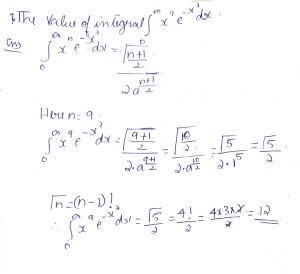 7. The value of integral ∫₀^∞ x⁹ e^(-x²) dx
Ans ∫₀^∞ xⁿ e^(-x²) dx = Γ((n+1)/2) / (2 a^((n+1)/2))
Here n = 9
∫₀^∞ x⁹ e^(-x²) dx = Γ((9+1)/2) / (2·a^((9+1)/2)) = Γ(10/2) / (2·a^(10/2)) = Γ5 / (2·1⁵) = Γ5 / 2
Γn = (n-1)!
∴ ∫₀^∞ x⁹ e^(-x²) dx = Γ5 / 2 = 4! / 2 = 4×3×2 / 2 = 12